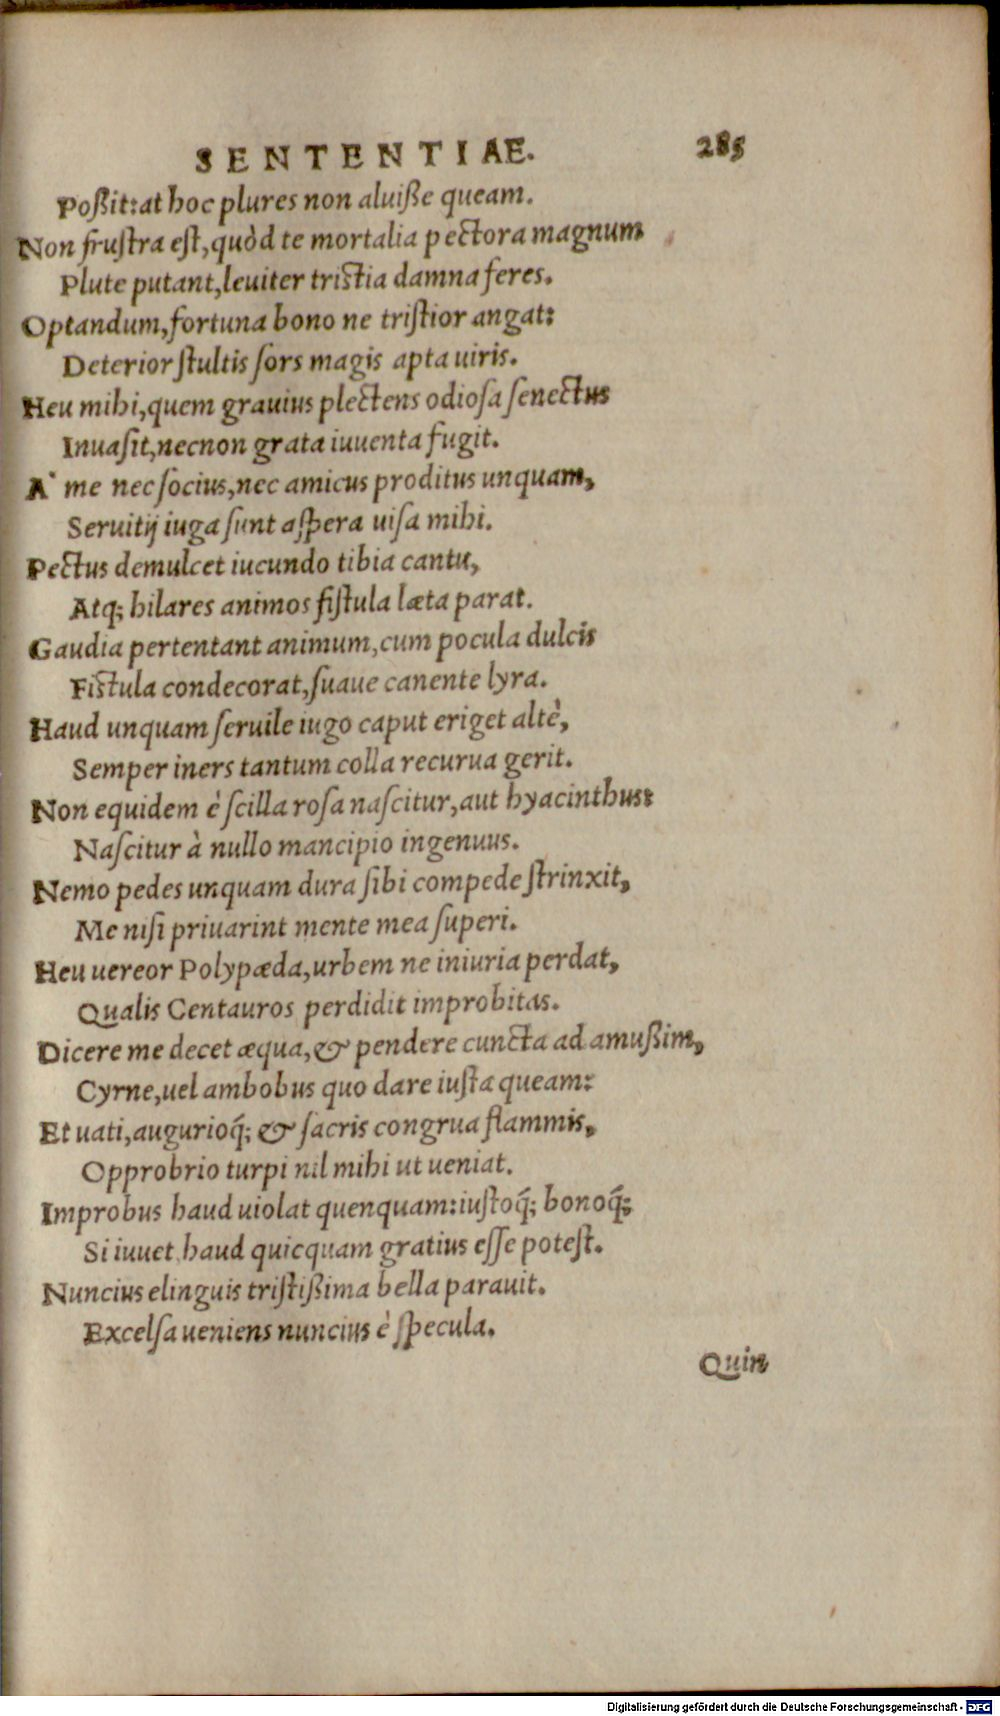 SENTENTIAE. 285
Poßit:at hoc plures non aluiße queam.
Non fruſtra eſt,quòd te mortalia pectora magnum
Plute putant,leuiter triſtia damna feres.
Optandum,fortuna bono ne triſtior angat:
Deterior ſtultis ſors magis apta uiris.
Heu mihi,quem grauius plectens odioſa ſenectus
Inuaſit,necnon grata iuuenta fugit.
A' me nec ſocius,nec amicus proditus unquam,
Seruitij iuga ſunt aſpera uiſa mihi.
Pectus demulcet iucundo tibia cantu,
Atq; hilares animos fiſtula læta parat.
Gaudia pertentant animum,cum pocula dulcis
Fiſtula condecorat,ſuaue canente lyra.
Haud unquam ſeruile iugo caput eriget altè,
Semper iners tantum colla recurua gerit.
Non equidem è ſcilla roſa naſcitur,aut hyacinthus:
Naſcitur à nullo mancipio ingenuus.
Nemo pedes unquam dura ſibi compede ſtrinxit,
Me niſi priuarint mente mea ſuperi.
Heu uereor Polypæda,urbem ne iniuria perdat,
Qualis Centauros perdidit improbitas.
Dicere me decet æqua,& pendere cuncta ad amußim,
Cyrne,uel ambobus quo dare iuſta queam:
Et uati,augurioq́; & ſacris congrua flammis,
Opprobrio turpi nil mihi ut ueniat.
Improbus haud uiolat quenquam:iuſtoq́; bonoq́;
Si iuuet haud quicquam gratius eſſe poteſt.
Nuncius elinguis triſtißima bella parauit.
Excelſa ueniens nuncius è ſpecula.
Quin
Digitalisierung gefördert durch die Deutsche Forschungsgemeinschaft - DFG